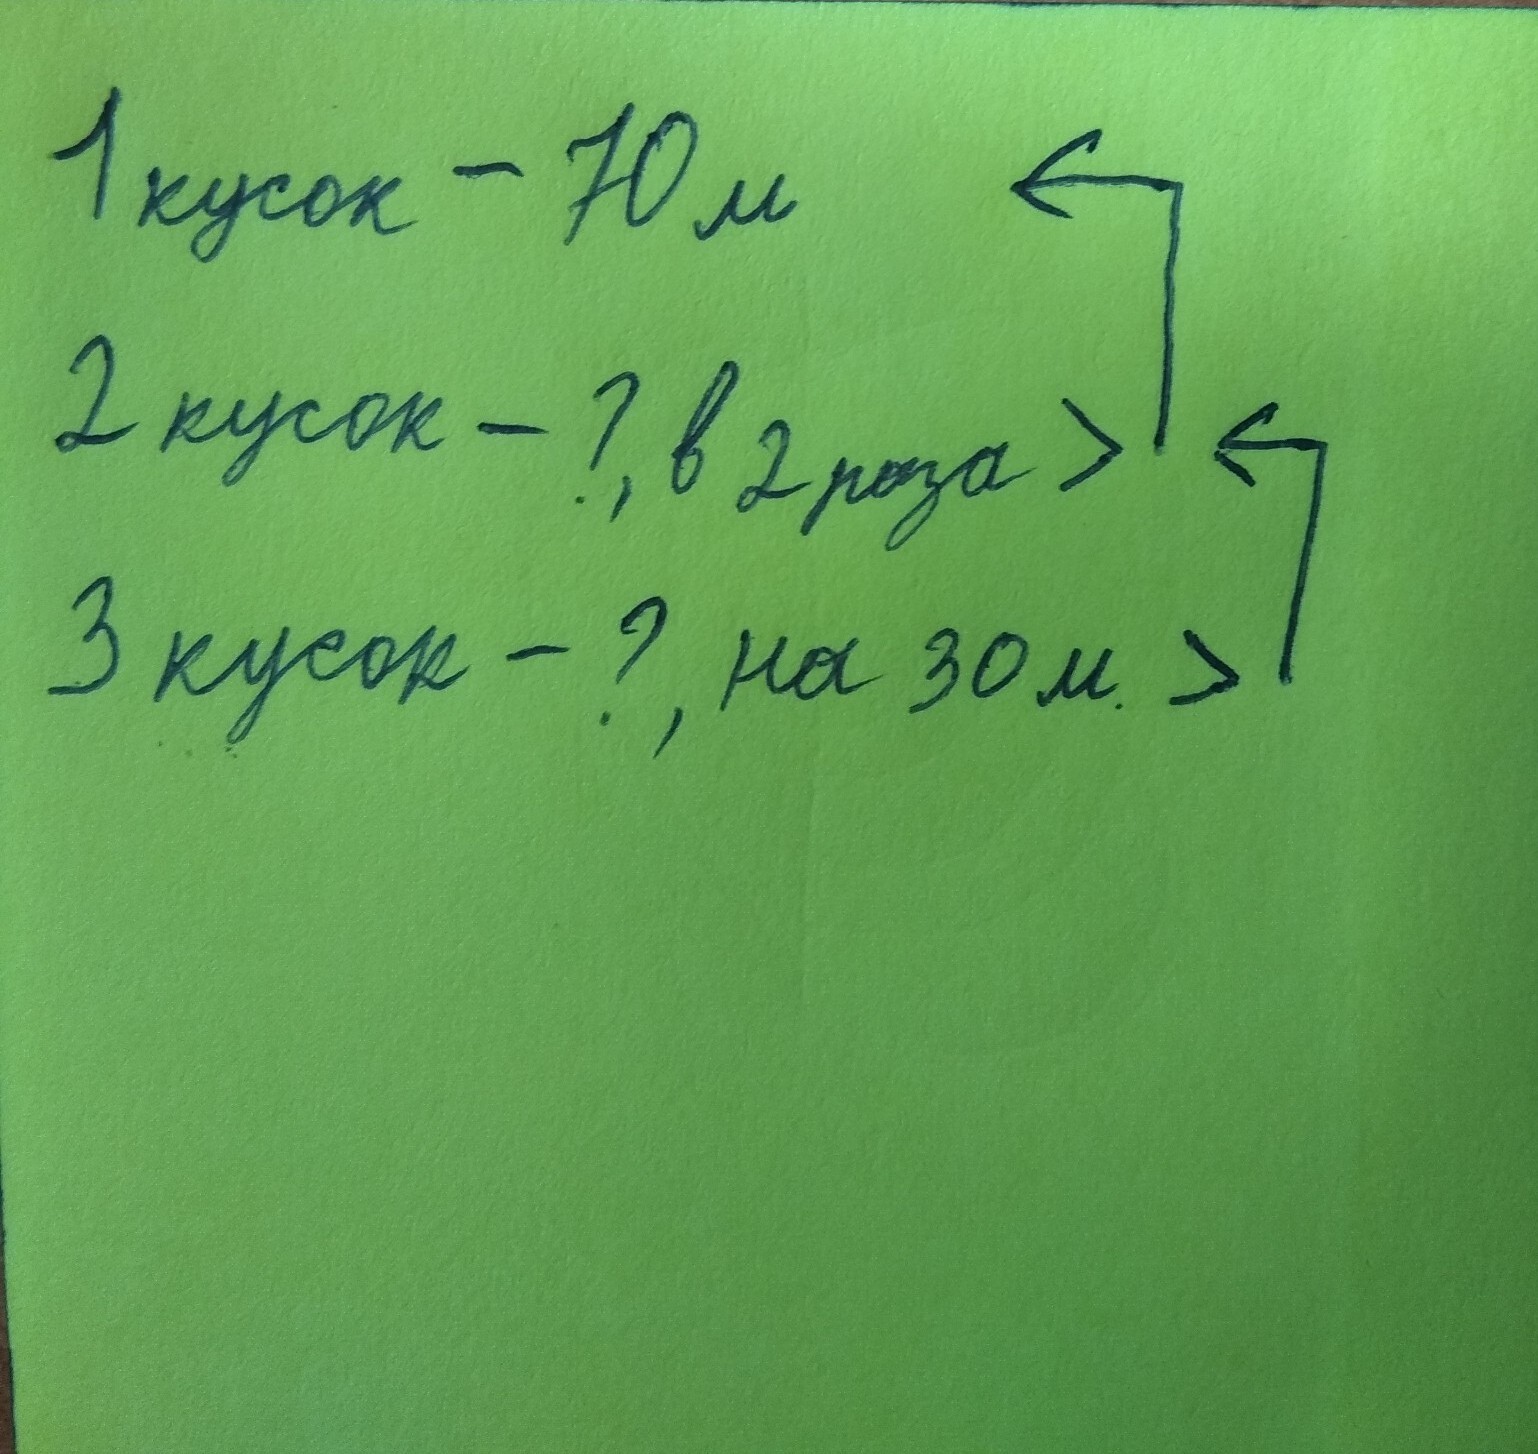 1 кусок - 70 м
2 кусок - ?, в 2 раза >
3 кусок - ?, на 30 м. >